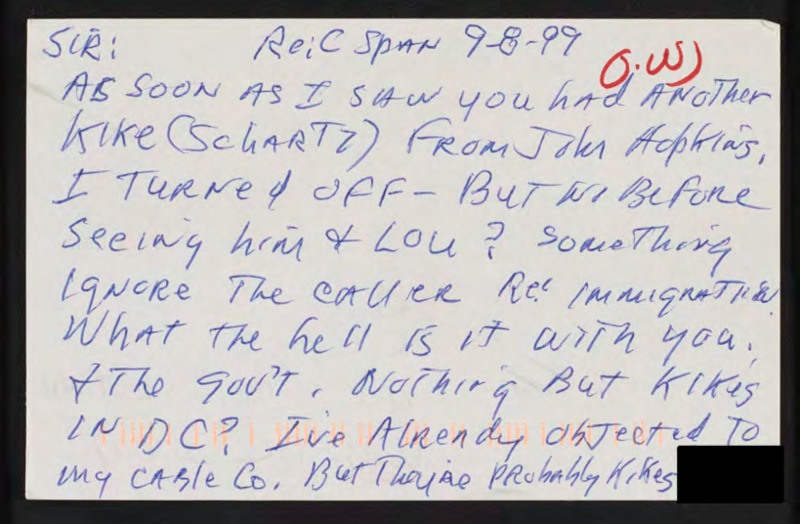 SIR: Re: C SPAN 9-8-99
O.W)
AS SOON AS I SAW YOU hAd ANOTher
KIKE (SchARTZ) FROM John Hopkins,
I TURNed OFF - BUT Before
Seeing him & LOU ? SomeThing
IGNORE The CALLER Re: immigration
WhAT The hell is iT wiTh you.
& The Gov'T. NoThing BuT KIKes
IN DC? I've AlReady objected To
my CABle Co. BuT They're PRobAbly Kikes